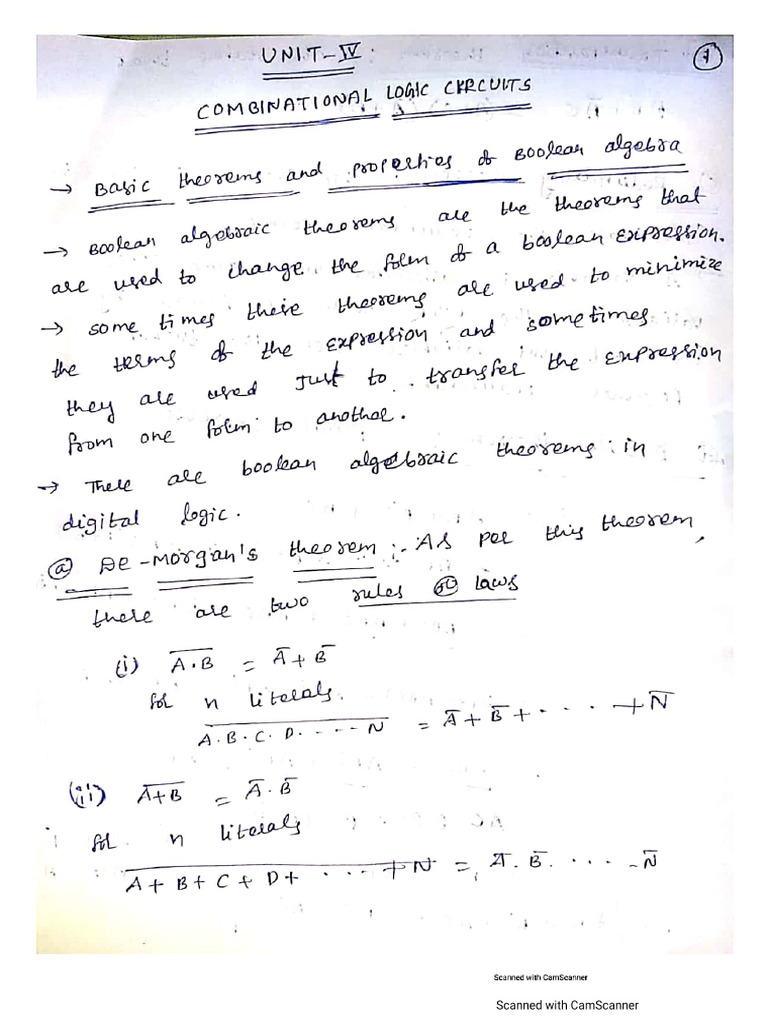 UNIT-IV
1
COMBINATIONAL LOGIC CIRCUITS
→ Basic theorems and properties of Boolean algebra
→ Boolean algebraic theorems are the theorems that
are used to change the form of a boolean expression.
→ some times these theorems are used to minimize
the terms of the expression and sometimes
they are used just to transfer the expression
from one form to another.
→ There are boolean algebraic theorems in
digital logic.
ⓐ De-morgan's theorem :- As per this theorem,
there are two rules or laws
(i) A̅.̅B̅ = A̅ + B̅
for n literals.
A̅.̅B̅.̅C̅.̅D̅.̅.̅.̅.̅.̅N̅ = A̅ + B̅ + . . . . + N̅
(ii) A̅+̅B̅ = A̅.B̅
for n literals
A̅+̅B̅+̅C̅+̅D̅+̅ ̅.̅.̅.̅.̅+̅N̅ = A̅.B̅. . . . . N̅
Scanned with CamScanner
Scanned with CamScanner